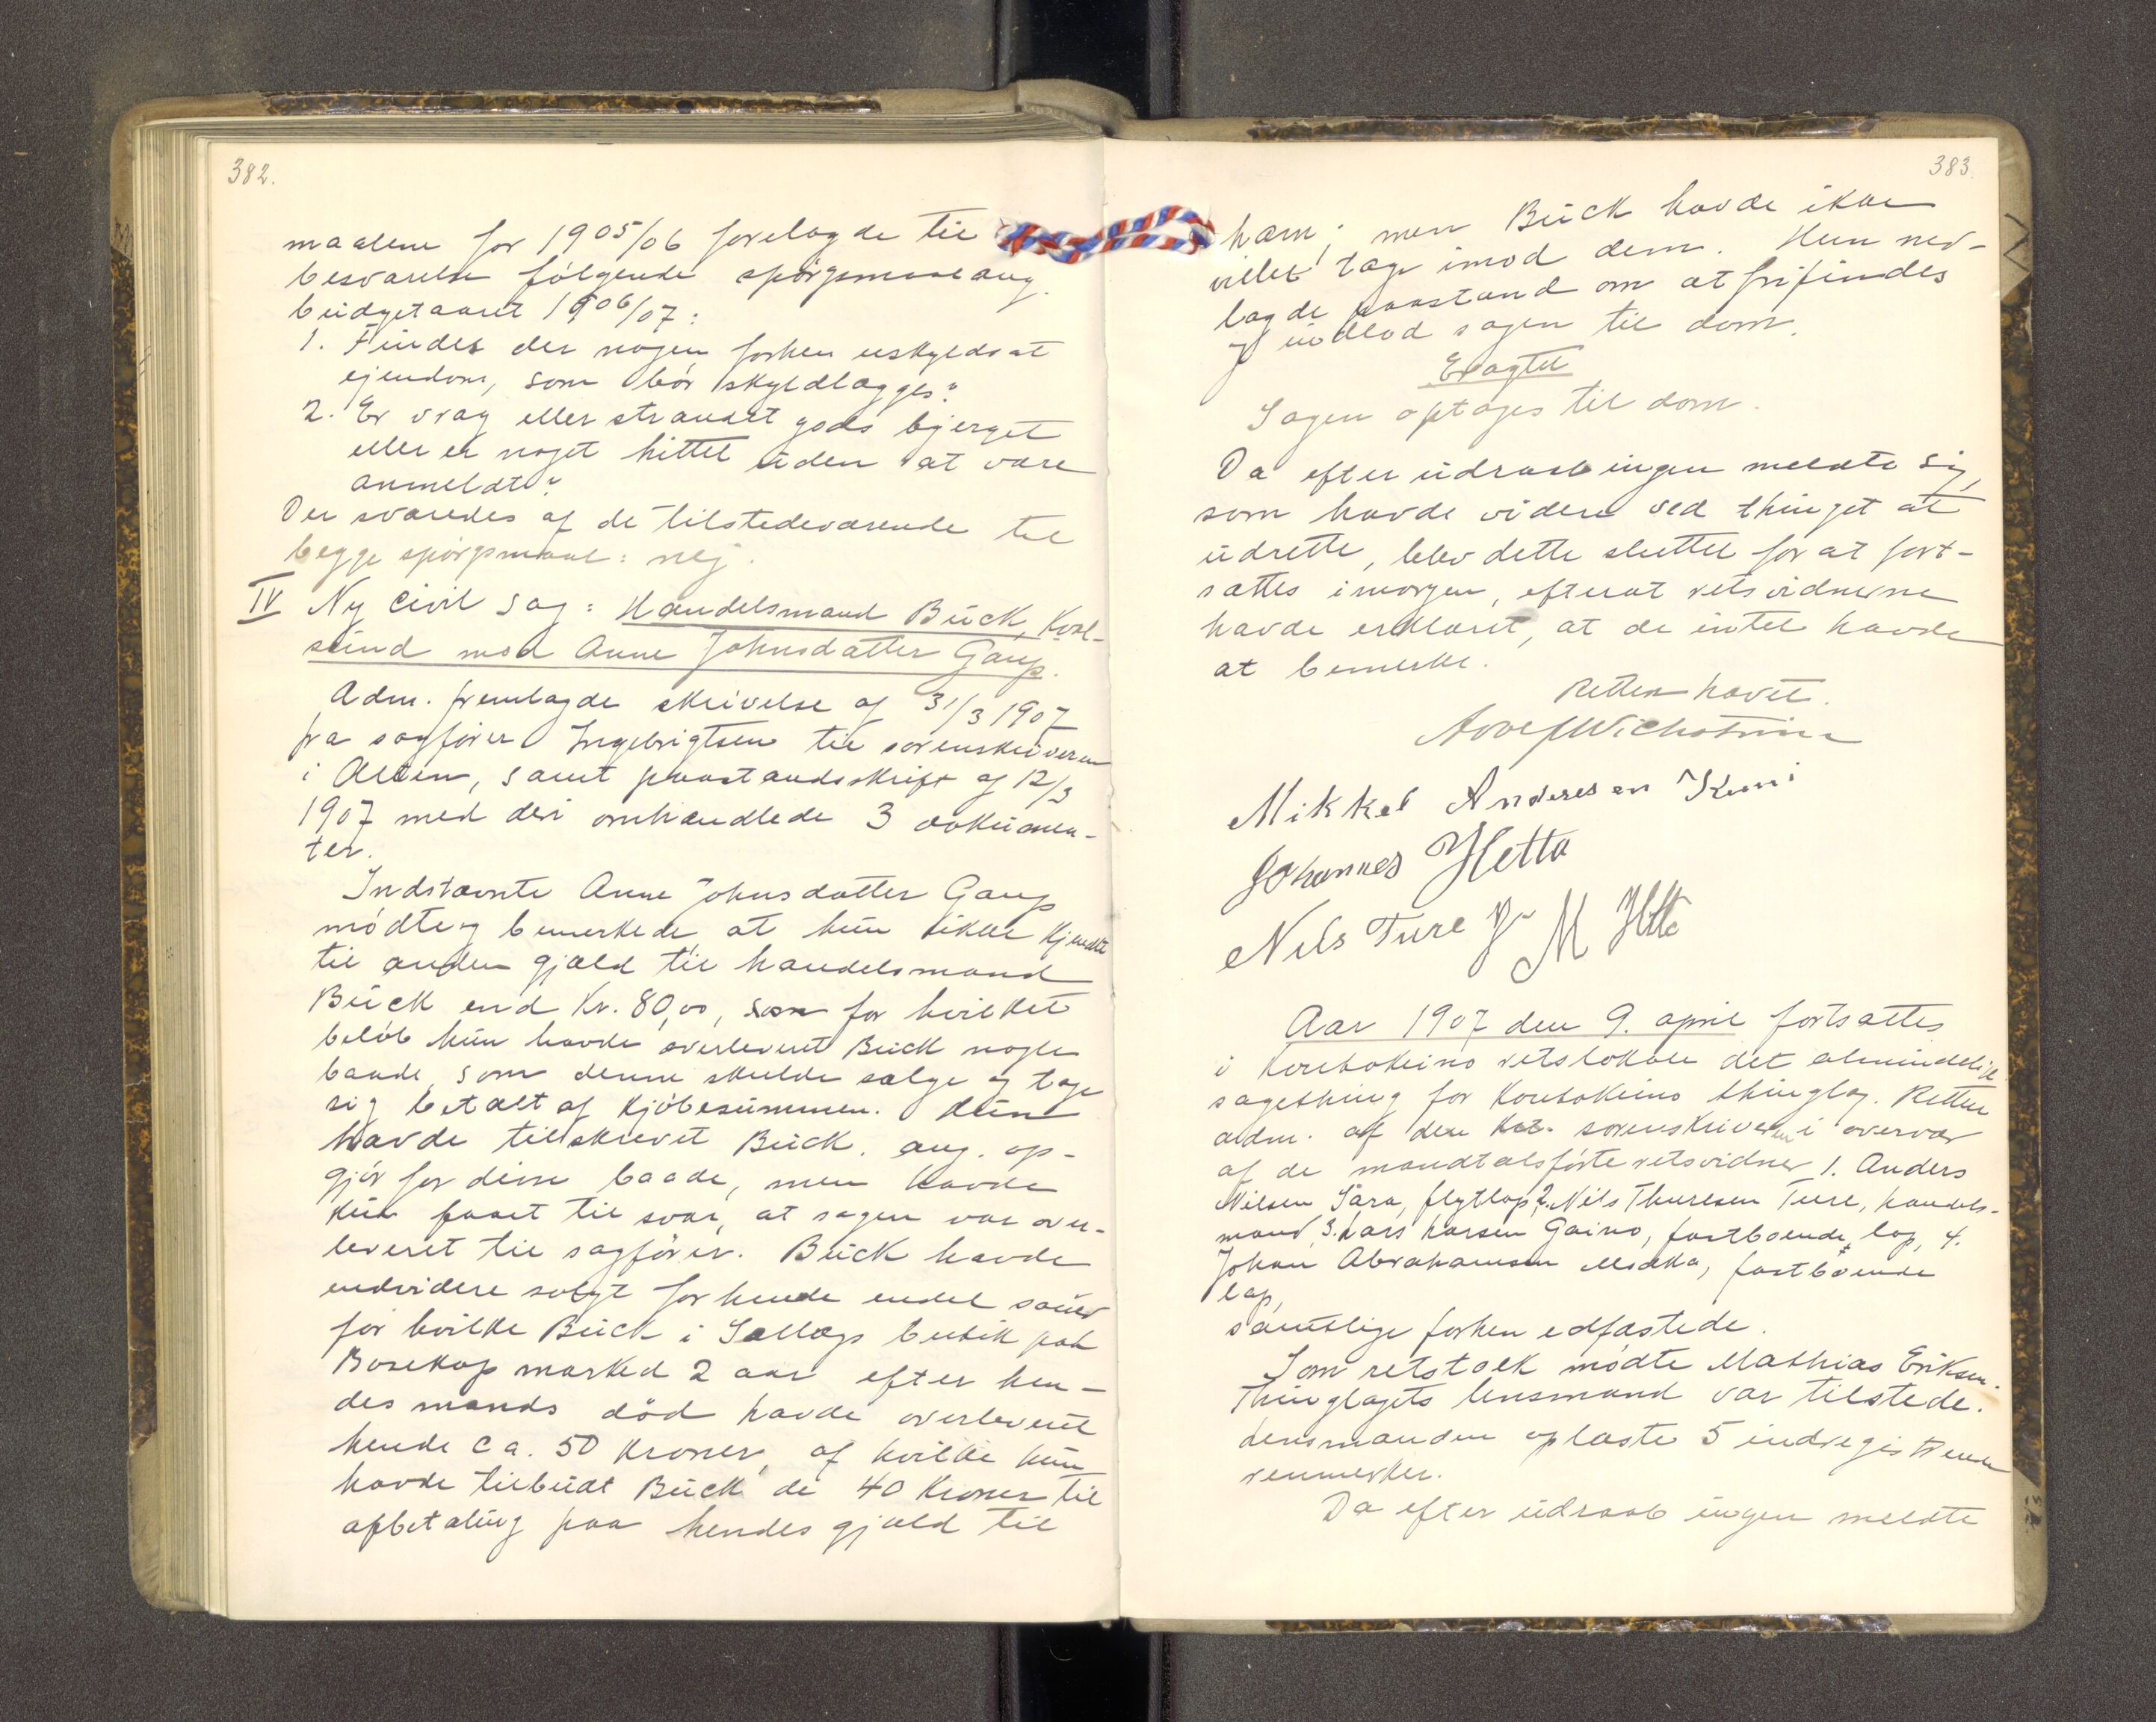 382.
maalene for 1905/06 forelagde til
besvarelse følgende spørgsmaal ang.
budgetaaret 1906/07:
1. Findes der nogen forhen uskyldsat
ejendom, som bør skyldlægges?
2. Er vrag eller strandet gods bjerget
eller er noget hittet uden at være
anmeldt?
Der svaredes af de tilstedeværende til
begge spørgsmaal: nej.
IV Ny civil sag: Handelsmand Buck, Kval-
sund mod Anne Johnsdatter Gaup.
Adm. fremlagde skrivelse af 31/3 1907
fra sagfører Ingebrigtsen til sorenskriveren
i Alten, samt paastandsskrift af 12/3
1907 med deri omhandlede 3 dokumen-
ter.
Indstævnte Anne Johnsdatter Gaup
mødte og bemerkede, at hun ikke kjendte
til anden gjæld til handelsmand
Buck end Kr. 80,00, som for hvilket
beløb hun havde overleveret Buck nogle
baade, som denne skulde sælge og tage
sig betalt af kjøbesummen. Hun
havde tilskrevet Buck. ang. op-
gjør for disse baade, men havde
kun faaet til svar, at sagen var over-
leveret til sagfører. Buck havde
endvidere solgt for hende endel sauer
for hvilke Buck i Sallags butik paa
Bosekop marked 2 aar efter hen-
des mands død havde overleveret
hende ca. 50 kroner, af hvilke hun
havde tilbudt Buck de 40 kroner til
afbetaling paa hendes gjæld til
383.
ham; men Buck havde ikke
villet tage imod dem. Hun ned-
lagde paastand om at frifindes
og indlod sagen til dom.
Eragtet
Sagen optages til dom.
Da efter udraab ingen meldte sig,
som havde videre ved thinget at
udrette, blev dette sluttet for at fort-
sættes imorgen, efterat retsvidnerne
havde erklæret, at de intet havde
at bemerke.
Retten hævet.
Mikkel Andersen Kemi
Johannes Hetta
Nils Ture Jr M Htta
Aar 1907 den 9. april fortsattes
i Koutokeino retslokale det almindelige
sagething for Koutokeino thinglag. Retten
adm. af den sorenskriveren i overvær
af de mandtalsførte retsvidner 1. Anders
Nilsen Sara, flytlap, 2. Nils Thuresen Ture, handels-
mand, 3. Lars Larsen Gaino, fastboende lap, 4.
Johan Abrahamsen Mækka, fastboende
lap,
samtlige forhen edfæstede.
Som retstolk mødte Mathias Eriksen.
Thinglagets lensmand var tilstede.
Lensmanden oplæste 5 indregistrerede
renmerker.
Da efter udraab ingen meldte